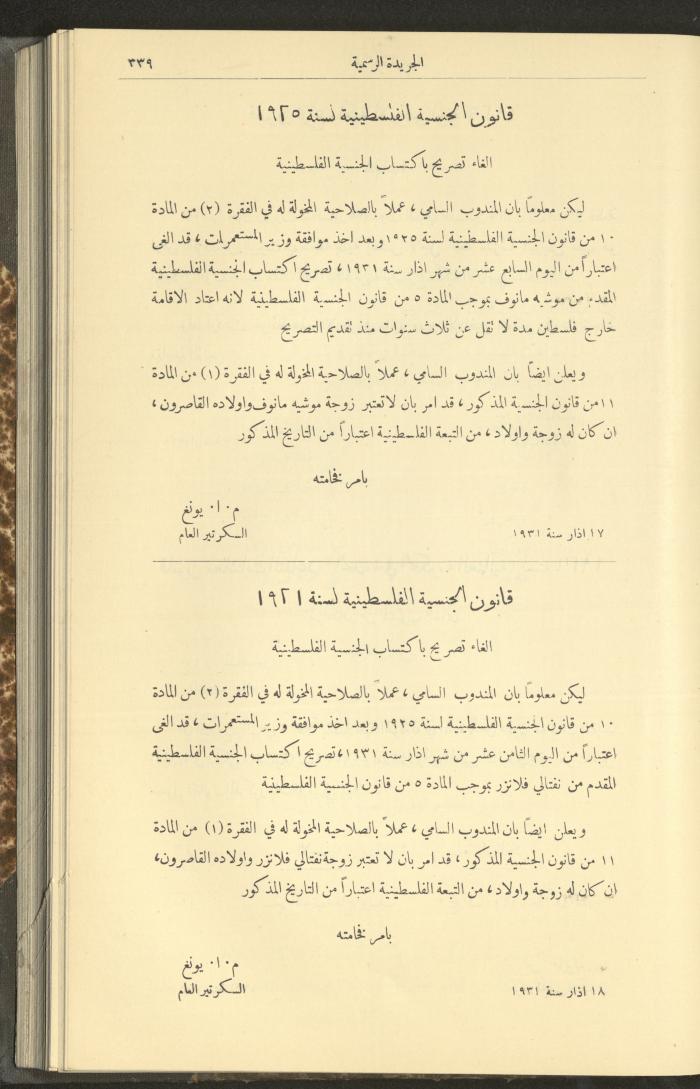 الجريدة الرسمية ٣٣٩
قانون الجنسية الفلسطينية لسنة ١٩٢٥
الغاء تصريح باكتساب الجنسية الفلسطينية
ليكن معلوماً بان المندوب السامي ، عملاً بالصلاحية المخولة له في الفقرة (٢) من المادة
١٠ من قانون الجنسية الفلسطينية لسنة ١٩٢٥ وبعد اخذ موافقة وزير المستعمرات ، قد الغى
اعتباراً من اليوم السابع عشر من شهر اذار سنة ١٩٣١ ، تصريح اكتساب الجنسية الفلسطينية
المقدم من موشيه مانوف بموجب المادة ٥ من قانون الجنسية الفلسطينية لانه اعتاد الاقامة
خارج فلسطين مدة لا تقل عن ثلاث سنوات منذ تقديم التصريح
ويعلن ايضاً بان المندوب السامي ، عملاً بالصلاحية المخولة له في الفقرة (١) من المادة
١١ من قانون الجنسية المذكور ، قد امر بان لا تعتبر زوجة موشيه مانوف واولاده القاصرون ،
ان كان له زوجة واولاد ، من التبعة الفلسطينية اعتباراً من التاريخ المذكور
بامر فخامته
م٠ ا٠ يونغ
١٧ اذار سنة ١٩٣١ السكرتير العام
قانون الجنسية الفلسطينية لسنة ١٩٢١
الغاء تصريح باكتساب الجنسية الفلسطينية
ليكن معلوماً بان المندوب السامي ، عملاً بالصلاحية المخولة له في الفقرة (٢) من المادة
١٠ من قانون الجنسية الفلسطينية لسنة ١٩٢٥ وبعد اخذ موافقة وزير المستعمرات ، قد الغى
اعتباراً من اليوم الثامن عشر من شهر اذار سنة ١٩٣١ ، تصريح اكتساب الجنسية الفلسطينية
المقدم من نفتالي فلانزر بموجب المادة ٥ من قانون الجنسية الفلسطينية
ويعلن ايضاً بان المندوب السامي ، عملاً بالصلاحية المخولة له في الفقرة (١) من المادة
١١ من قانون الجنسية المذكور ، قد امر بان لا تعتبر زوجة نفتالي فلانزر واولاده القاصرون ،
ان كان له زوجة واولاد ، من التبعة الفلسطينية اعتباراً من التاريخ المذكور
بامر فخامته
م٠ ا٠ يونغ
١٨ اذار سنة ١٩٣١ السكرتير العام